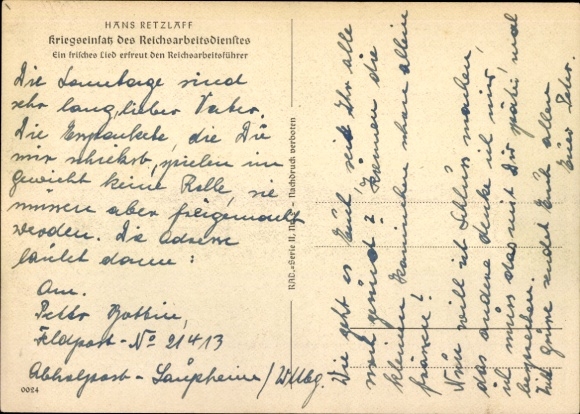 HANS RETZLAFF
Kriegseinsatz des Reichsarbeitsdienstes
Ein frisches Lied erfreut den Reichsarbeitsführer
Die Sonntage sind
sehr lang, lieber Vater.
Die Expankete, die Du
mir schickst, spielen im
gewicht keine Rolle, sie
müssen aber freigemacht
werden. Die adresse
lautet dann:
An.
Peter
Feldpost-No 21413
Abholpost - Laupheim/Wttbg.
0024
RAD.-Serie II, Nachdruck verboten
Wie geht es Euch, seid Ihr alle
und gesund? Können die
kleinen Kaninchen schon allein
fressen?
Nun will ich Schluss machen,
das andere denke ich mir,
ich muss das mit Dir später mal
besprechen.
Viele Grüsse sendet Euch allen
Euer Peter.